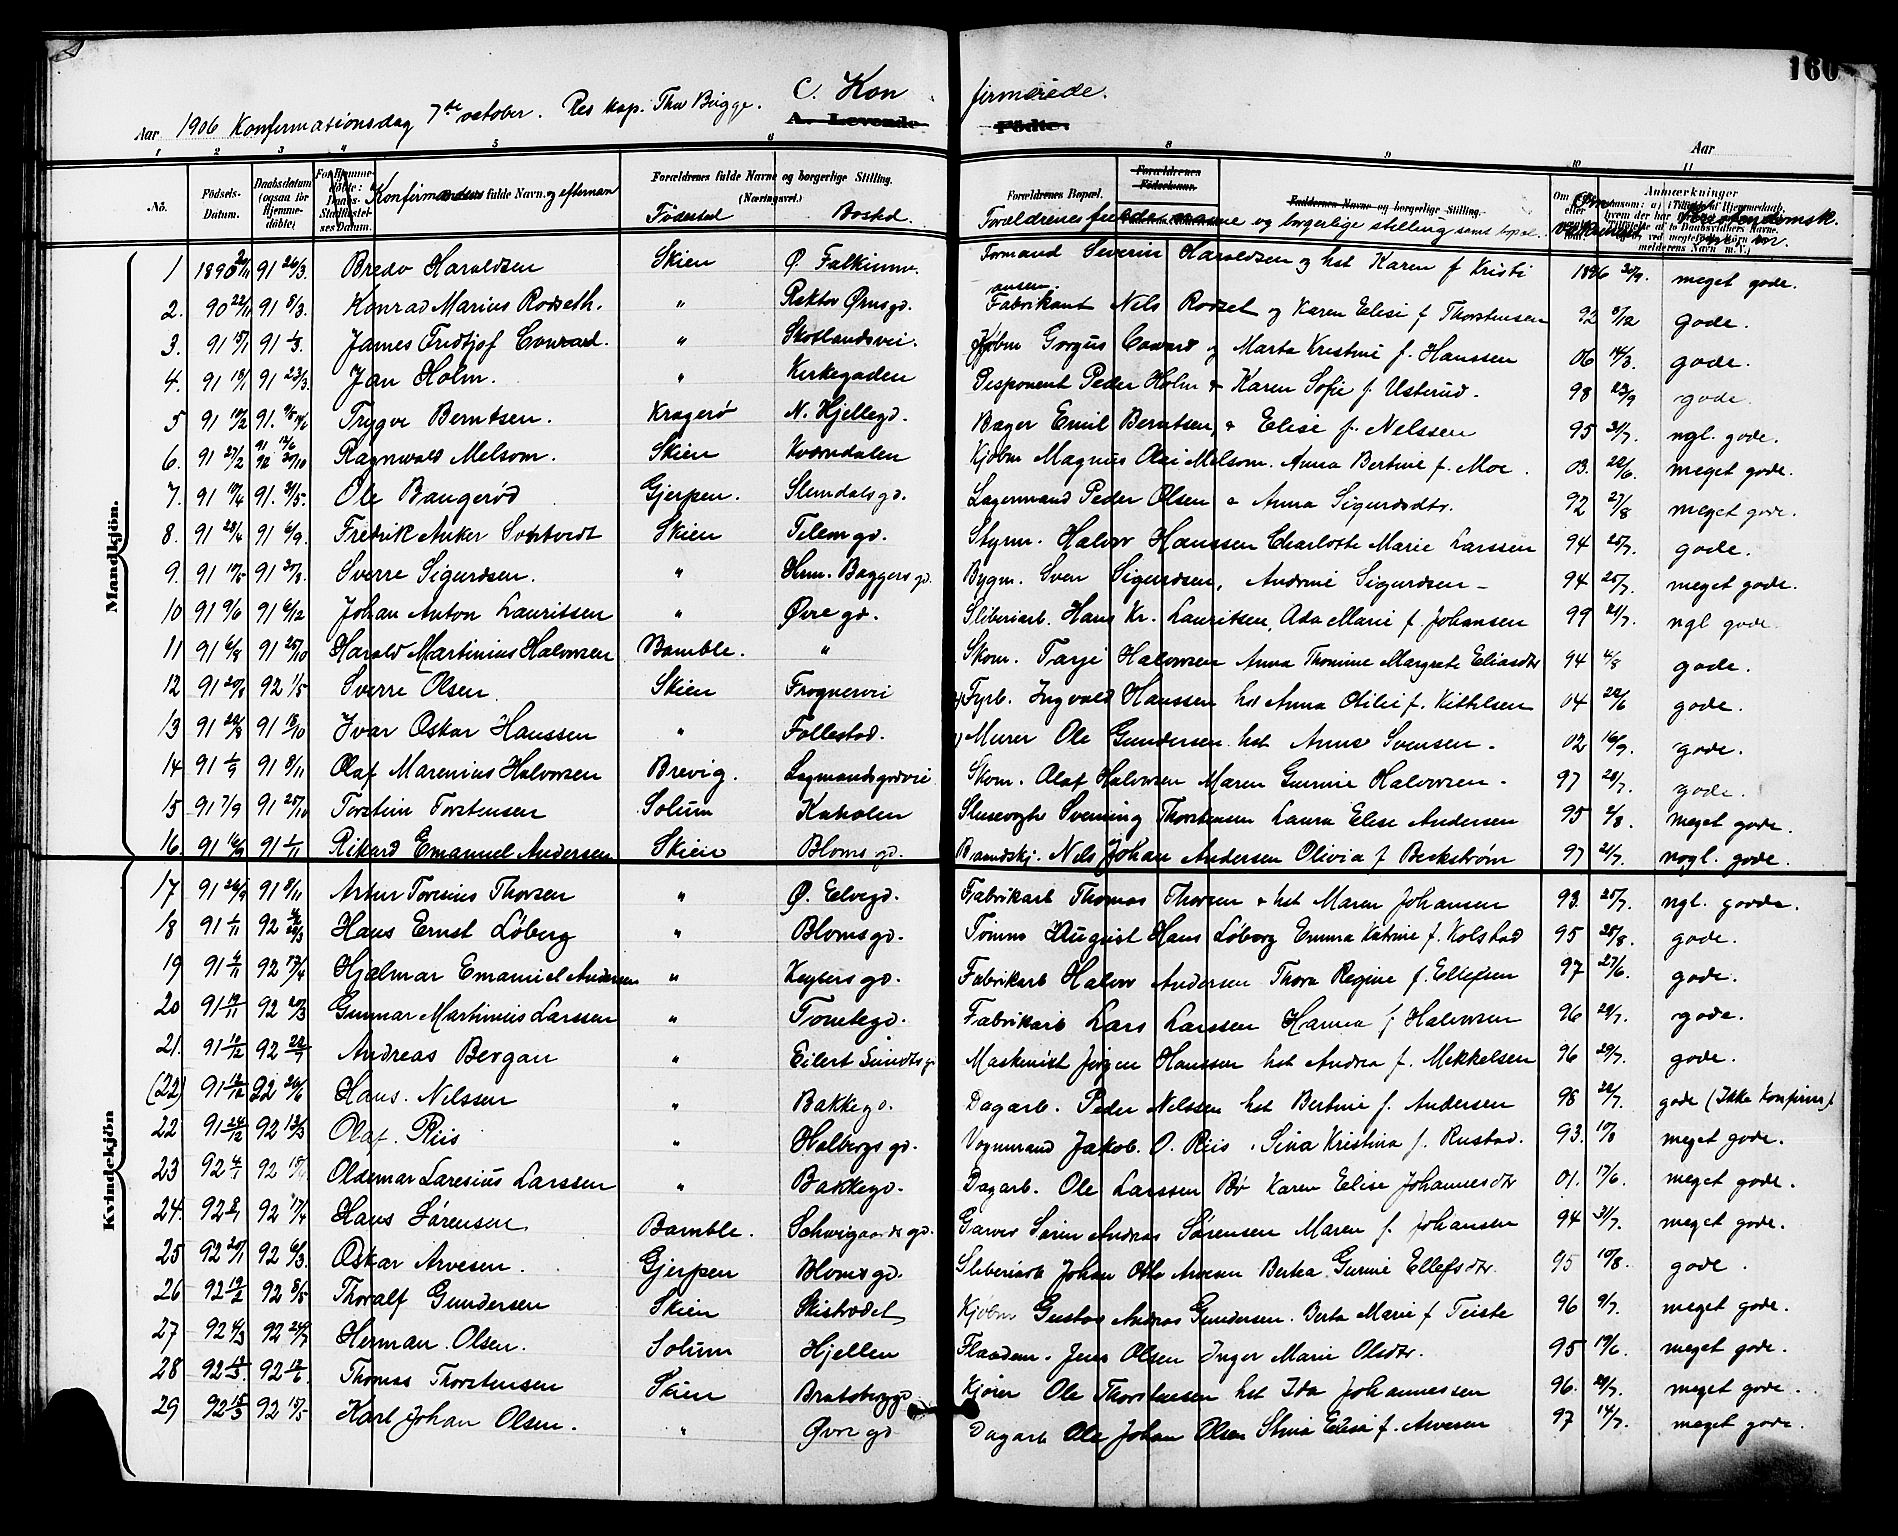 160
C. Konfirmerede.
Aar 1906 Konfirmationsdag 7de october. Res kap. Thv Bugge. A. Levende Fødte. Aar
1 2 3 4 5 6 8 9 10 11
Nò. Födsels-Datum. Daabsdatum (ogsaa for Hjemmedöbte) Konfirm fulde Navn og efternavn Forældrenes fulde Navne og borgerlige Stilling. (Næringsvei.) Fødested Bosted Forældrenes Bopæl. Forældrenes Fødselsaar. Faddernes Navne og borgerlige Stilling. Anmærkninger
Forældrenes fulde navne og borgerlige stilling samt bopæl.
Mandkjön.
1 1890 91 26/3 Bredo Haraldsen Skien Ø. Formand Severin Haraldsen og hst Karen f Kristiansen. meget gode.
2. 90 22/11 91 8/3 Konrad Marius Rodseth. " Rektor Ørnsgd. Fabrikant Nils Rodset og Karen Elise f Thorstensen 92 gode.
3. 91 15/1 91 James Fridtjof Conrad. " Skotlandsvei. Kjøbm Gorgus og Marta Kristine f. Hanssen 06 14/3 gode.
4. 91 91 23/3. Jan Holm. " Kirkegaden Disponent Peder Holm & Karen Sofie f. Usterud. 98 23/9 gode.
5 91 10/2 91. Trygve Berntsen. Kragerø N. Hjellegd. Bager Emil Berntsen, & Elise f. Nelssen 95 31/7. ngl. gode.
6. 91 27/2 Ragnvald Melsom. Skien Kværndalen Kjøbm Magnus Melsom. Anna Bertine f. Moe. 03. 22/6 meget gode.
7. 91 91. 31/5. Ole Bangerød Gjerpen. Slemdalsgd. Lagermand Peder Olsen & Anna Sigurdsdtr. 92 27/8 meget gode.
8. 91 28/4 91 6/9. Fredrik Anker Skien Telemgd. Styrm. Halvor Hanssen Charlotte Marie Larssen 94 25/7. gode.
9. 91 91 Sverre Sigurdsen. " Hrm. Baggersgd. Bygm. Sven Sigurdsen, Andrine Sigurdsen - 94 25/7. meget gode.
10 91 9/6 91 6/12 Johan Anton Lauritsen " Øvre gd. Sliberiarb. Hans Kr. Lauritsen, Ada Marie f. Johansen 99 21/7. ngl gode
11 91 6/8 91 25/10 Harald Martinius Halvorsen Bamble. " Skom. Tarje Halvorsen Anna Thomine Margrete Eliasdtr 94 4/8 gode.
12 91 92 1/5 Sverre Olsen. Skien Frognervei Fyrb. Ingvald Hanssen hst Anna Otilie f. Kittilsen 04 22/6 gode.
13 91 91 18/10 Ivar Oskar Hanssen " Follestad. Murer Ole Gundersen. hst Anne Svensen. 02 16/9. gode.
14 91 1/9 91 8/11 Olaf Marenius Halvorsen Brevig. Lagmandsgdvei Skom. Olaf Halvorsen Maren Gurine Halvorsen - 97 28/7. gode.
15 91 7/9 91 25/10 Torstein Torstensen Solum Kaholen Slusevogter Svenning Thorstensen Laura Elise Andersen 95 2/8. meget gode.
16. 91 16/9 91 1/11 Rikard Emanuel Andersen Skien Bloms gd. Brandskj. Nels Johan Andersen Olivia f Beckstrøm 97 21/7. nogl. gode.
17 91 91 8/11 Artur Toresius Thorsen " Ø. Elvegd. Fabrikarb Thomas Thorsen & hst Maren Johansen 93. 25/7. ngl. goode.
18 91 1/11 92 Hans Ernst Løberg " Blomsgd. Tømm August Hans Løberg Emma Katrine f. Kolstad 95 25/8. gode.
19 91 4/11 92 Hjalmar Emanuel Andersen " Keysersgd. Fabrikarb Halvor Andersen Thora Regine f. Ellefsen 97 27/6. gode.
20 91 92 20/3 Gunnar Martinius Larssen " Tomtegd. Fabrikarb Lars Larssen Hanna f Halvorsen 96 28/7. gode.
21. 91 10/12 92 Andreas Bergan " Eilert Sundtsg. Maskinist Jørgen Hanssen hst Andrea f. Mikkelsen 96 29/7. gode.
(22) 91 12/12 92 26/6 Hans. Nilssen " Bakkegd. Dagarb. Peder Nelssen hst Bertine f. Andersen 98 22/7. gode (Ikke Konfirm)
22 91 24/12 92 13/3 Olaf. Riis " Holbergs gd. Vognmand Jakob. O. Riis. Sina Kristina f. Rustad. 93. 10/8 meget gode.
Kvindekjön
23 92 4/1 92 Oldemar Laresius Larssen " Bakkegd. Dagarb. Ole Larssen Bø Karen Elise Johannesdtr 01. 17/6. meget gode.
24. 92 8/1 92 17/4 Hans Sørensen Bamble. Schweigaards gd. Garver Søren Andreas Sørensen Maren f. Johansen 94 31/7. meget gode.
25 92 20/1 92 6/3. Oskar Arvesen. Gjerpen Bloms gd. Sliberiarb Johan Otto Arvesen Bertea Gurine Ellefsdtr. 95 10/8. gode.
26 92 92 8/5 Thoralf Gundersen Skien Skistredet Kjøbm Gustav Andreas Gundersen. Berta Marie f Teiste 96 9/7. meget gode.
27 92 92 24/7 Herman Olsen. Solum Hjellen Jens Olsen Inger Marie Olsdtr. 95 19/6. meget gode.
28 92 92 Thomas Thorstensen Skien Bratsberggd. Kjører Ole Thorstensen hst Ida Johannessen 96. 20/7. meget gode.
29 92 15/3 92 15/5 Karl Johan Olsen. " Øvre gd Dagarb Ole Johan Olsen Elise f. Arvesen 97 14/7. meget gode.